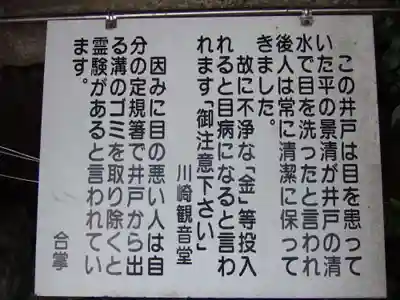 この井戸は目を患って
いた平の景清が井戸の清
水で目を洗ったと言われ
後人は常に清潔に保って
きました。
故に不浄な「金」等投入
れると目病になると言わ
れます「御注意下さい」
川崎観音堂
因みに目の悪い人は自
分の定規箸で井戸から出
る溝のゴミを取り除くと
霊験があると言われてい
ます。
合掌